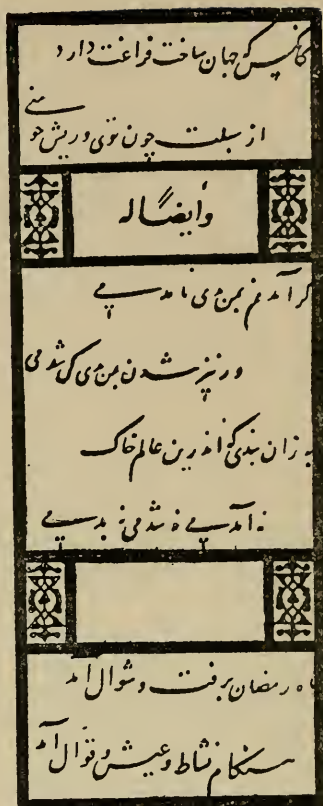 کانکس که جهان ساخت فراغت دارد
از سبلت چون توی و ریش چو منی
وأیضاً له
گر آمدنم بمن بدی نامدمی
ور نیز شدن بمن بدی کی شدمی
به زان نبدی که اندرین عالم خاک
نه آمدمی نه شدمی نه بدمی
ماه رمضان برفت و شوال آمد
هنگام نشاط و عیش و قوّال آمد